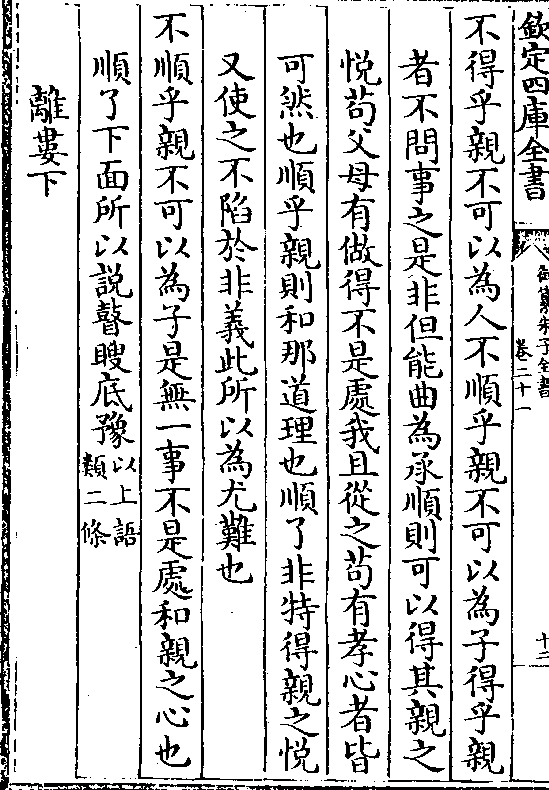 欽定四庫全書
御纂朱子全書
卷二十一
十二
不得乎親不可以為人不順乎親不可以為子得乎親
者不問事之是非但能曲為承順則可以得其親之
悅茍父母有做得不是處我且從之茍有孝心者皆
可然也順乎親則和那道理也順了非特得親之悅
又使之不陷於非義此所以為尤難也
不順乎親不可以為子是無一事不是處和親之心也
順了下面所以說瞽瞍底豫以上語
類二條
離婁下